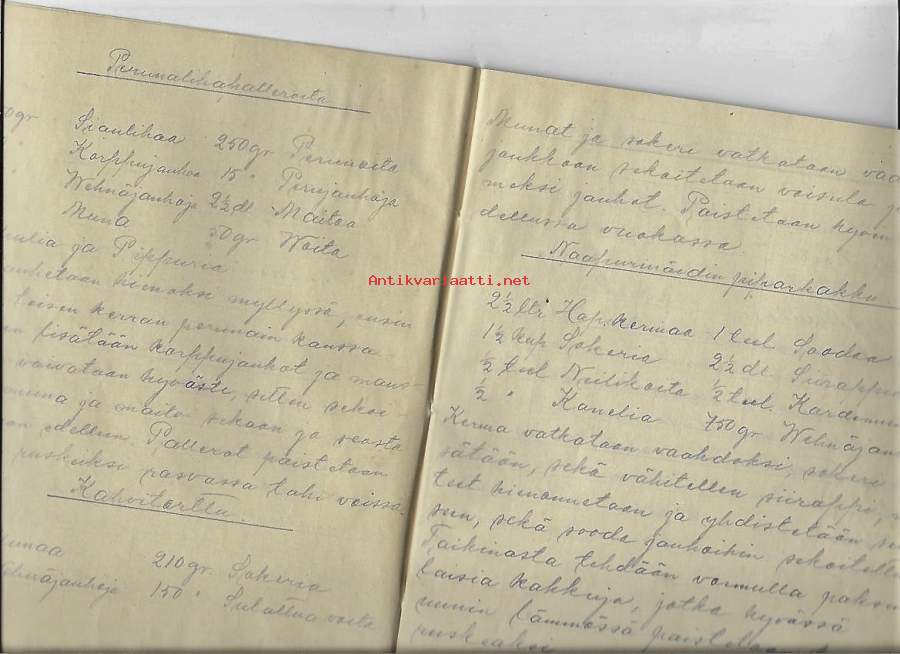 Perunalihapalleroita
50gr Sianlihaa 250gr Perunoita
Korppujauhoa 15 " Perujauhoja
Wehnäjauhoja 2½ dl. Maitoa
Muna 50gr. Woita
ja Pippuria
hienoksi myllyssä, ensin
toisen kerran perunain kanssa.
lisätään korppujauhot ja maus-
vaivataan hyvästi, sitten sekoi-
muna ja maito sekaan ja
edelleen. Pallerot paistetaan
ruskeiksi rasvassa tahi voissa.
Kahvitorttu.
munaa 210 gr. Sokeria
150 " Sulattua voita
Munat ja sokeri vatkataan
joukkoon sekoitetaan voisula
meksi jauhot. Paistetaan hyvin
dellussa vuokassa
Naapurinäidin piparkakku.
2½ ltr Hap. kermaa 1 teel Soodaa
1½ kup Sokeria 2½ dl. Siirappia
½ teel Neilikoita ½ teel. Kardemu
½ " Kanelia 750 gr Wehnäjau
Kerma vatkataan vaahdoksi, sokeri
sätään, sekä vähitellen siirappi,
teet hienonnetaan ja yhdistetään
sun, sekä sooda jauhoihin sekoitettu
Taikinasta tehdään vormulla paksu
laisia kakkuja, jotka hyvässä
uunin lämmössä paistetaan
ruskeaksi
Antikvariaatti.net